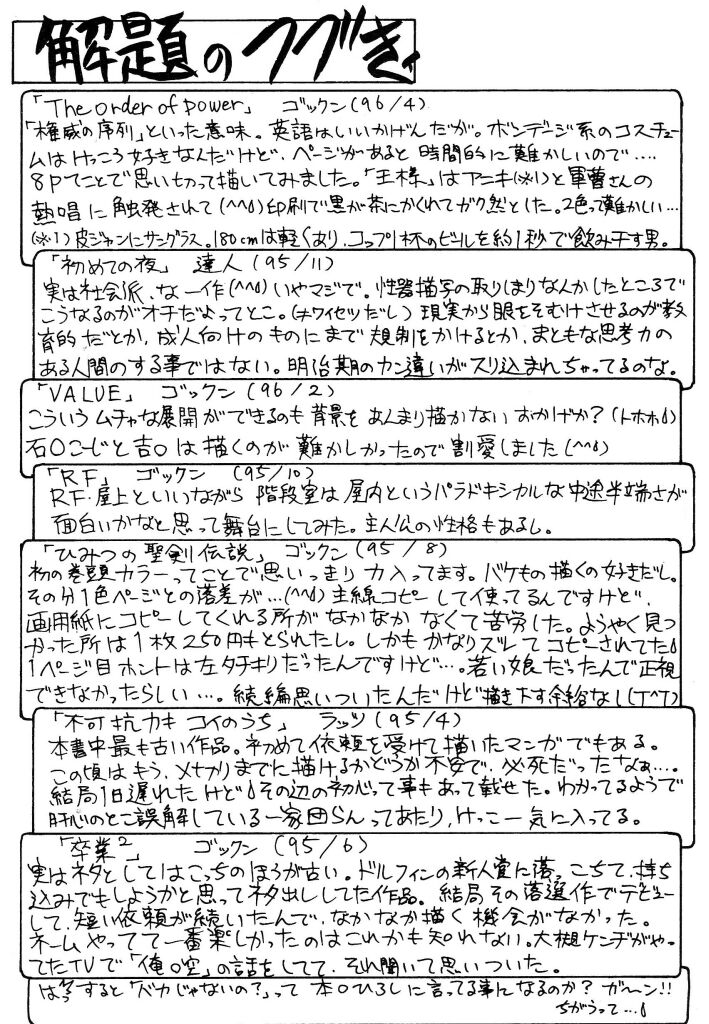 解題のつづき
「The order of power」 ゴックン(96/4)
「権威の序列」といった意味。英語はいいかげんだが。ボンデージ系のコスチュー
ムはけっこう好きなんだけど、ページがあると時間的に難かしいので‥‥
8Pてことで思い切って描いてみました。「王様」はアニキ(※1)と軍曹さんの
熱唱に触発されて(^^;)印刷で黒が茶にかくれてガク然とした。2色って難かしい…
(※1)皮ジャンにサングラス。180cmは軽くあり、コップ1杯のビールを約1秒で飲み干す男。
「初めての夜」 達人(95/11)
実は社会派、な一作(^^;)いやマジで。性器描写の取りしまりなんかしたところで
こうなるのがオチだよってとこ。(チワイセツだし)現実から眼をそむけさせるのが教
育的だとか、成人向けのものにまで規制をかけるとか、まともな思考力の
ある人間のする事ではない。明治期のカン違いがスリ込まれちゃってるのな。
「VALUE」 ゴックン(96/2)
こういうムチャな展開ができるのも背景をあんまり描かないおかげか?(トホホ)
石〇こーじと吉〇は描くのが難かしかったので割愛しました(^^;)
「RF」 ゴックン(95/10)
RF・屋上といいながら階段室は屋内というパラドキシカルな中途半端さが
面白いかなと思って舞台にしてみた。主人公の性格もあるし。
「ひみつの聖剣伝説」 ゴックン(95/8)
初の巻頭カラーってことで思いっきり力入ってます。バケもの描くの好きだし。
その分1色ページとの落差が…(^^;)主線コピーして使ってるんですけど、
画用紙にコピーしてくれる所がなかなかなくて苦労した。ようやく見つ
かった所は1枚250円もとられたし。しかもかなりズレてコピーされてた
1ページ目ホントは左タチキリだったんですけど…。若い娘だったんで正視
できなかったらしい…。続編思いついたんだけど描き下す余裕なし(T^T)
「不可抗力もコイのうち」 ラッツ(95/4)
本書中最も古い作品。初めて依頼を受けて描いたマンガでもある。
この頃はもう、〆切りまでに描けるかどうか不安で、必死だったなぁ…。
結局1日遅れたけど その辺の初心って事もあって載せた。わかってるようで
肝心のとこ誤解している一家団らんってあたり、けっこー気に入ってる。
「卒業²」 ゴックン(95/6)
実はネタとしてはこっちのほうが古い。ドルフィンの新人賞に落っこちて、持ち
込みでもしようかと思ってネタ出ししてた作品。結局その落選作でデビュー
して、短い依頼が続いたんで、なかなか描く機会がなかった。
ネームやってて一番楽しかったのはこれかも知れない。大槻ケンヂがやっ
てたTVで「俺〇空」の話をしてて、それ聞いて思いついた。
すると「バカじゃないの?」って本〇ひろしに言ってる事になるのか?ガーン!!
ちがうって…